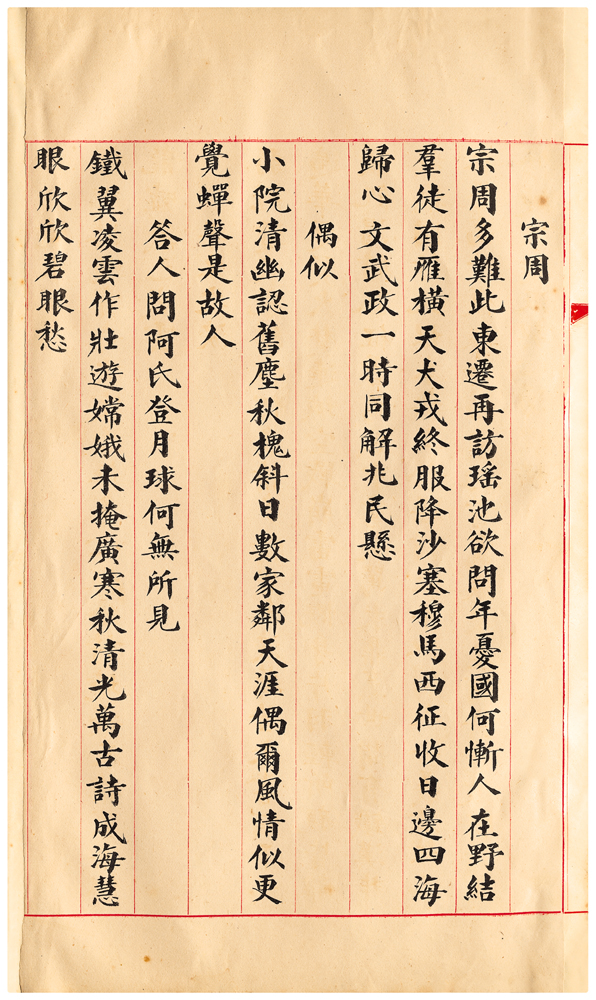 宗周
宗周多難此東遷再訪瑶池欲問年憂國何慚人在野結
羣徒有雁橫天犬戎終服降沙塞穆馬西征收日邊四海
歸心文武政一時同解兆民懸
偶似
小院清幽認舊塵秋槐斜日數家鄰天涯偶爾風情似更
覺蟬聲是故人
答人問阿氏登月球何無所見
鐵翼凌雲作壯遊嫦娥未掩廣寒秋清光萬古詩成海慧
眼欣欣碧眼愁